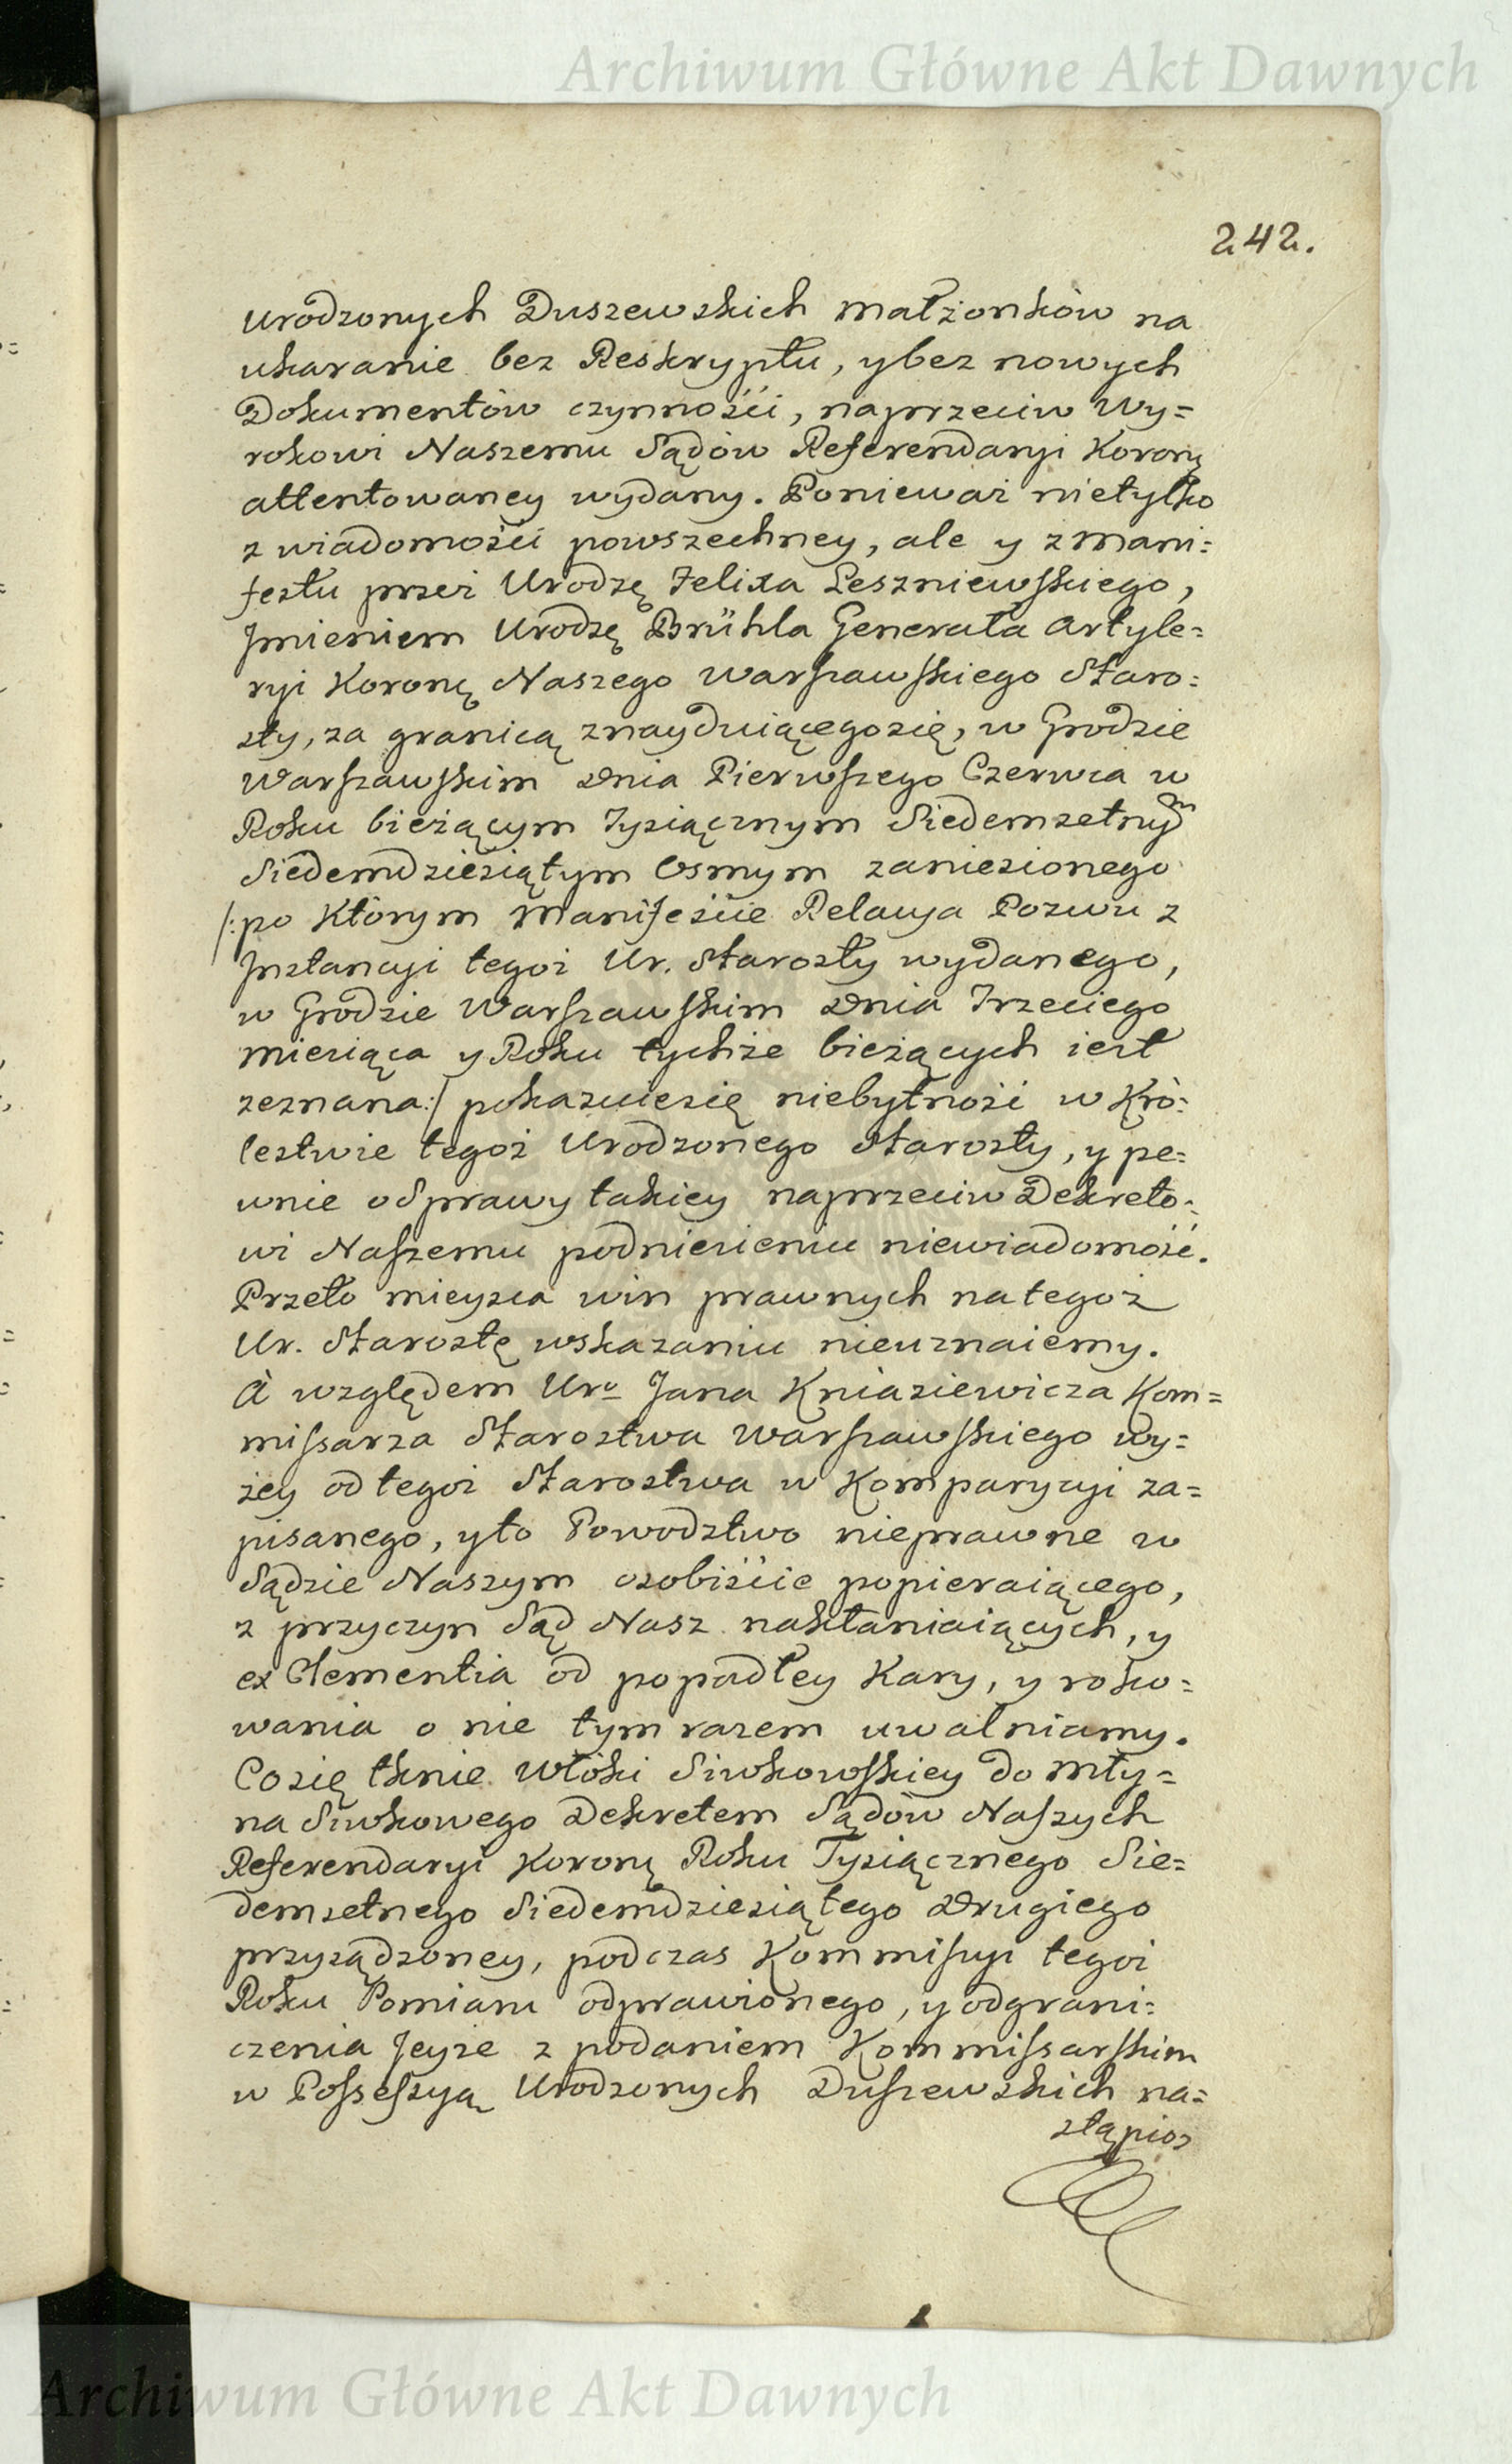 Archiwum Główne Akt Dawnych
242.
Urodzonych Duszewskich Małżonków na
ukaranie bez Reskryptu, y bez nowych
Dokumentów czynności, naprzeciw Wy=
rokowi Naszemu Sądów Referendaryi Koronę
attentowaney wydany. Ponieważ nietylko
z wiadomości powszechney, ale y z Mani=
festu przez Urodzę Felixa Leszniewskiego,
Jmieniem Urodzę Brühla Generała Artyle=
ryi Koronę Naszego Warszawskiego Staro=
sty, za granicą znayduiącegosię, w Grodzie
Warszawskim Dnia Pierwszego Czerwca w
Roku bieżącym Tysiącznym Siedemsetnym
Siedemdziesiątym Osmym zaniesionego
/:po którym Manifeście Relacya Pozwu z
Jnstancyi tegoż Ur. Starosty wydanego,
w Grodzie Warszawskim Dnia Trzeciego
Miesiąca y Roku tychże bieżących iest
zeznana:/ pokazuiesię niebytność w Kró=
lestwie tegoż Urodzonego Starosty, y pe=
wnie o Sprawy takiey naprzeciw Dekreto=
wi Naszemu podniesieniu niewiadomość.
Przeto mieysca win prawnych na tegoż
Ur. Starostę wskazaniu nieuznaiemy.
A względem Uro Jana Kniaziewicza Kom=
missarza Starostwa Warszawskiego wy=
żey od tegoż Starostwa w Komparycyi za=
pisanego, y to Powodztwo nieprawne w
Sądzie Naszym osobiście popieraiącego,
z przyczyn Sąd Nasz nakłaniaiących, y
ex Clementia od popadłey Kary, y roko=
wania o nie tym razem uwalniamy.
Co się tknie Włóki Siwkowskiey do Mły=
na Siwkowego Dekretem Sądów Naszych
Referendaryi Koronę Roku Tysiącznego Sie=
demsetnego Siedemdziesiątego Drugiego
przysądzoney, podczas Kommissyi tegoż
Roku Pomiaru odprawionego, y odgrani=
czenia Jeyże z podaniem Kommissarskim
w Possessyą Urodzonych Duszewskich na=
stąpio
Archiwum Główne Akt Dawnych